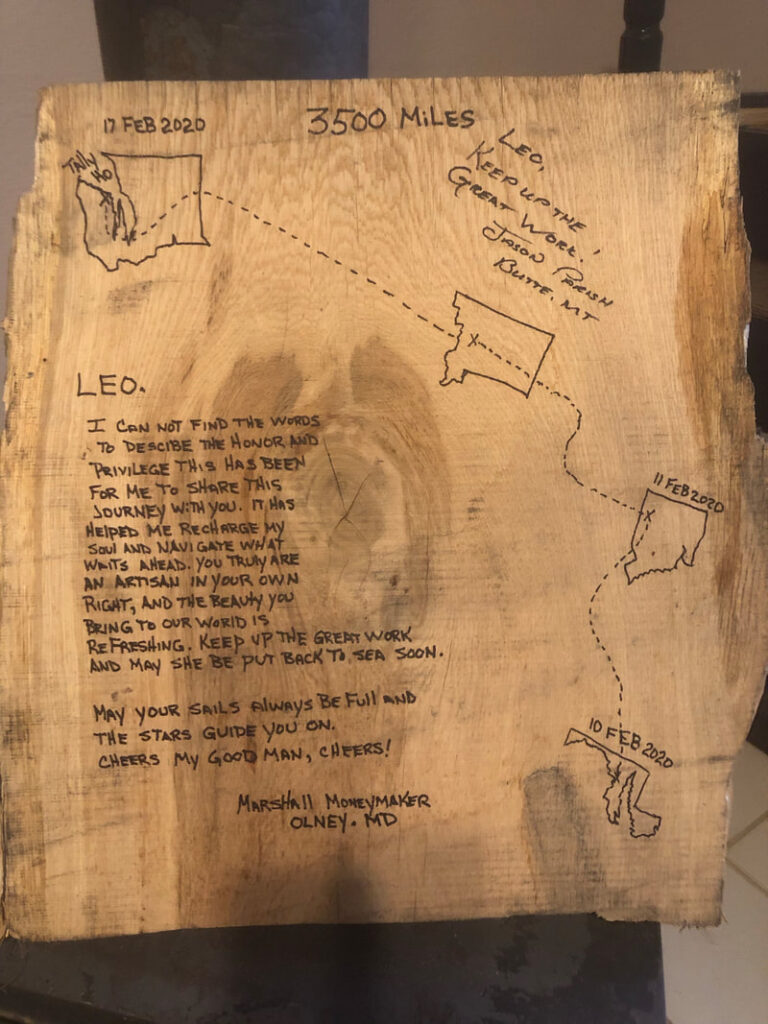 17 FEB 2020
3500 MILES
TALLY
HO
LEO,
KEEP UP THE
GREAT WORK!
JASON PARISH
BUTTE, MT
LEO.
I CAN NOT FIND THE WORDS
TO DESCIBE THE HONOR AND
PRIVILEGE THIS HAS BEEN
FOR ME TO SHARE THIS
JOURNEY WITH YOU. IT HAS
HELPED ME RECHARGE MY
SOUL AND NAVIGATE WHAT
WAITS AHEAD. YOU TRULY ARE
AN ARTISAN IN YOUR OWN
RIGHT, AND THE BEAUTY YOU
BRING TO OUR WORLD IS
REFRESHING. KEEP UP THE GREAT WORK
AND MAY SHE BE PUT BACK TO SEA SOON.
MAY YOUR SAILS ALWAYS BE FULL AND
THE STARS GUIDE YOU ON.
CHEERS MY GOOD MAN, CHEERS!
MARSHALL MONEYMAKER
OLNEY. MD
11 FEB 2020
10 FEB 2020